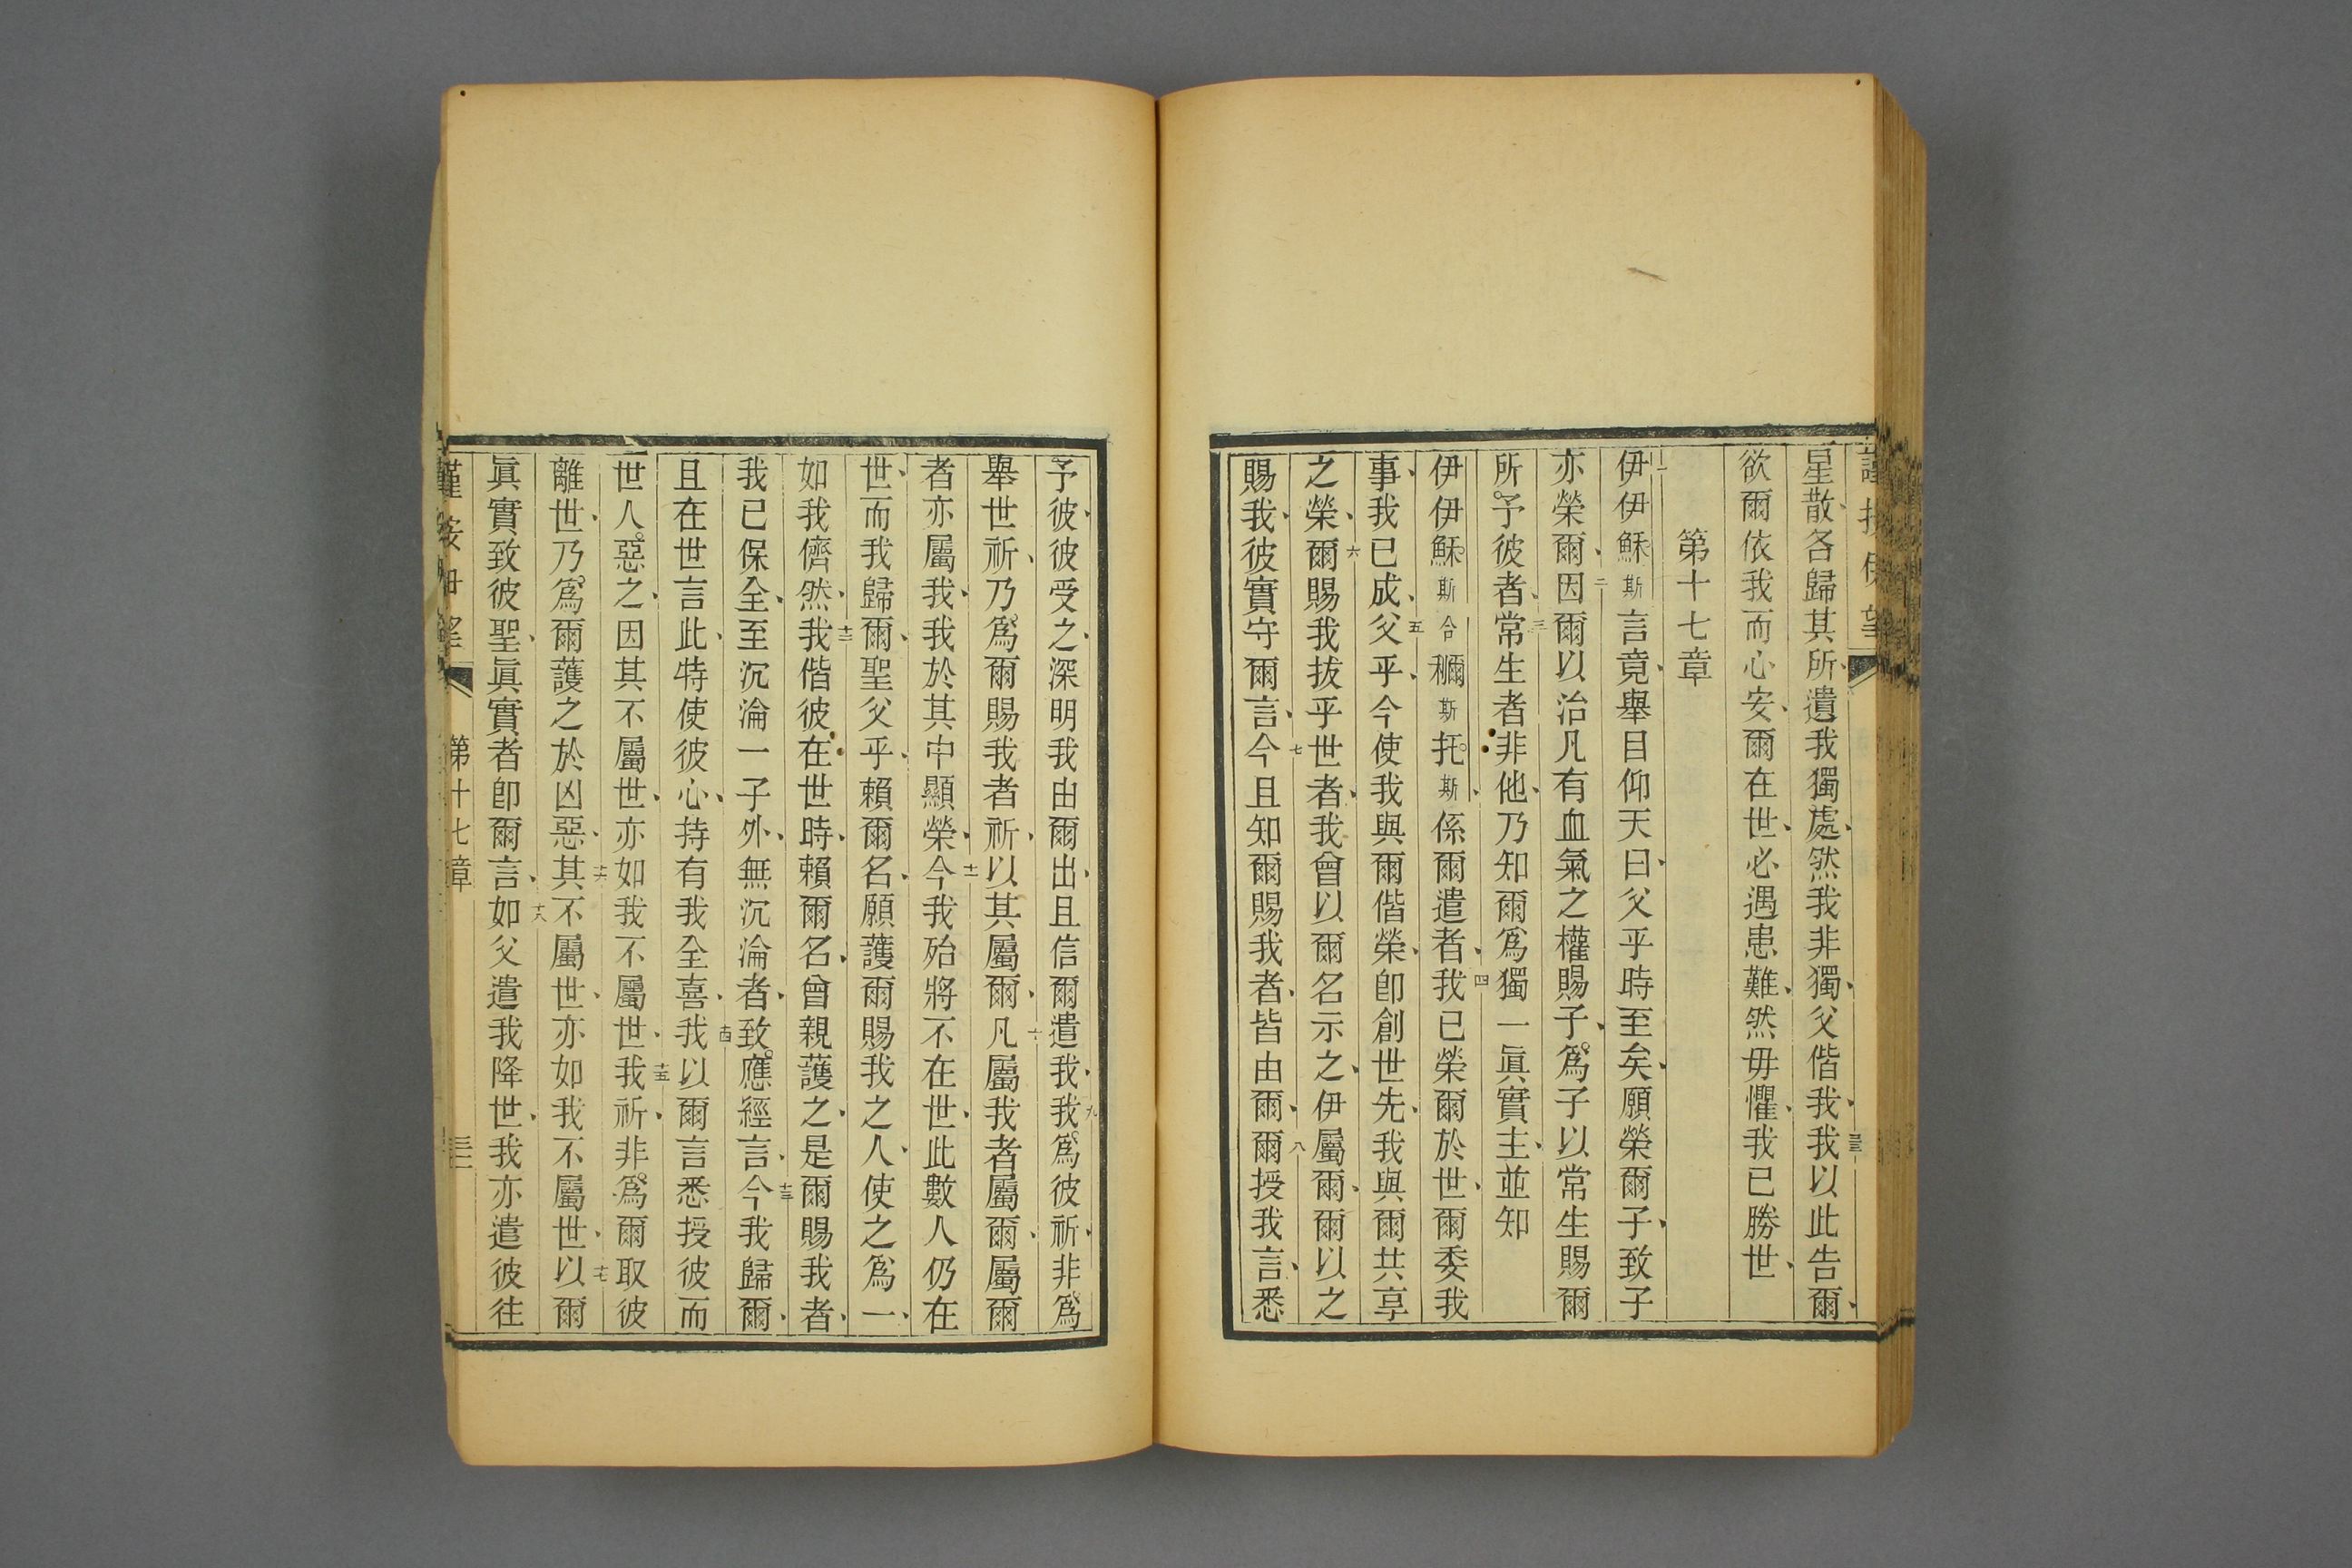 星散各歸其所遺我獨處然我非獨父偕我我以此告爾
欲爾依我而心安爾在世必遇患難然毋懼我已勝世
第十七章
一伊伊穌斯言竟舉目仰天曰父乎時至矣願榮爾子致子
亦榮爾二因爾以治凡有血氣之權賜子爲子以常生賜爾
所予彼者三常生者非他乃知爾爲獨一眞實主並知
伊伊穌斯合穪斯托斯係爾遣者四我已榮爾於世爾委我
事我已成五父乎今使我與爾偕榮卽創世先我與爾共享
之榮六爾賜我拔乎世者我曾以爾名示之伊屬爾爾以之
賜我彼實守爾言七今且知爾賜我者皆由爾八爾授我言悉
予彼彼受之深明我由爾出且信爾遣我九我爲彼祈非爲
舉世祈乃爲爾賜我者祈以其屬爾十凡屬我者屬爾屬爾
者亦屬我我於其中顯榮十一今我殆將不在世此數人仍在
世而我歸爾聖父乎賴爾名願護爾賜我之人使之爲一
如我儕然十二我偕彼在世時賴爾名曾親護之是爾賜我者
我已保全至沉淪一子外無沉淪者致應經言十三今我歸爾
且在世言此特使彼心持有我全喜十四我以爾言悉授彼而
世人惡之因其不屬世亦如我不屬世十五我祈非爲爾取彼
離世乃爲爾護之於凶惡十六其不屬世亦如我不屬世十七以爾
眞實致彼聖眞實者卽爾言十八如父遣我降世我亦遣彼往
第十七章